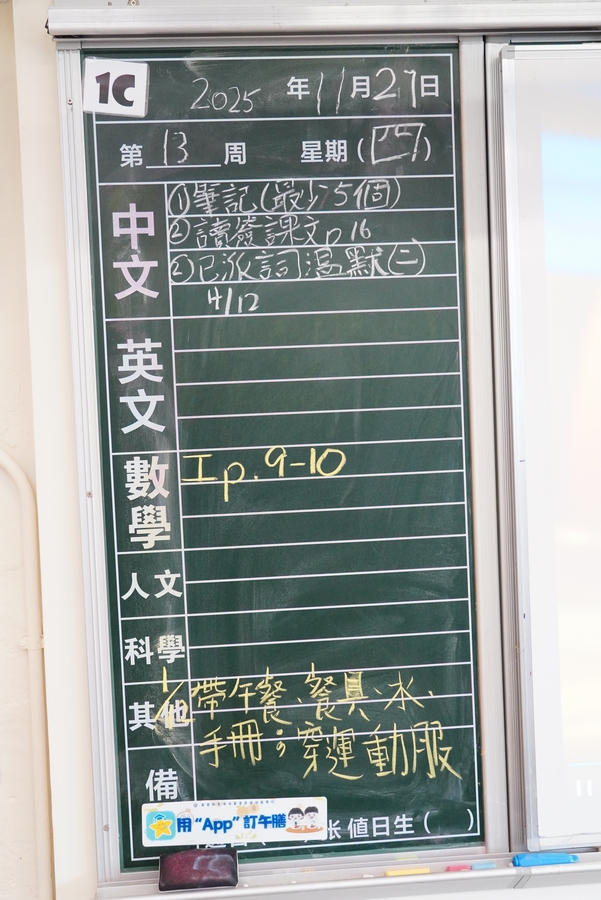 1C
2025 年 11 月 27 日
第 13 周 星期 (四)
中文
①筆記(最少5個)
②讀簽課文p.16
②已派詞溫默(二)
4/12
英文
數學
I p.9-10
人文
科學
其他
1/12 帶午餐、餐具、水、
手冊；穿運動服
備
用"App"訂午膳
张 值日生 ( )